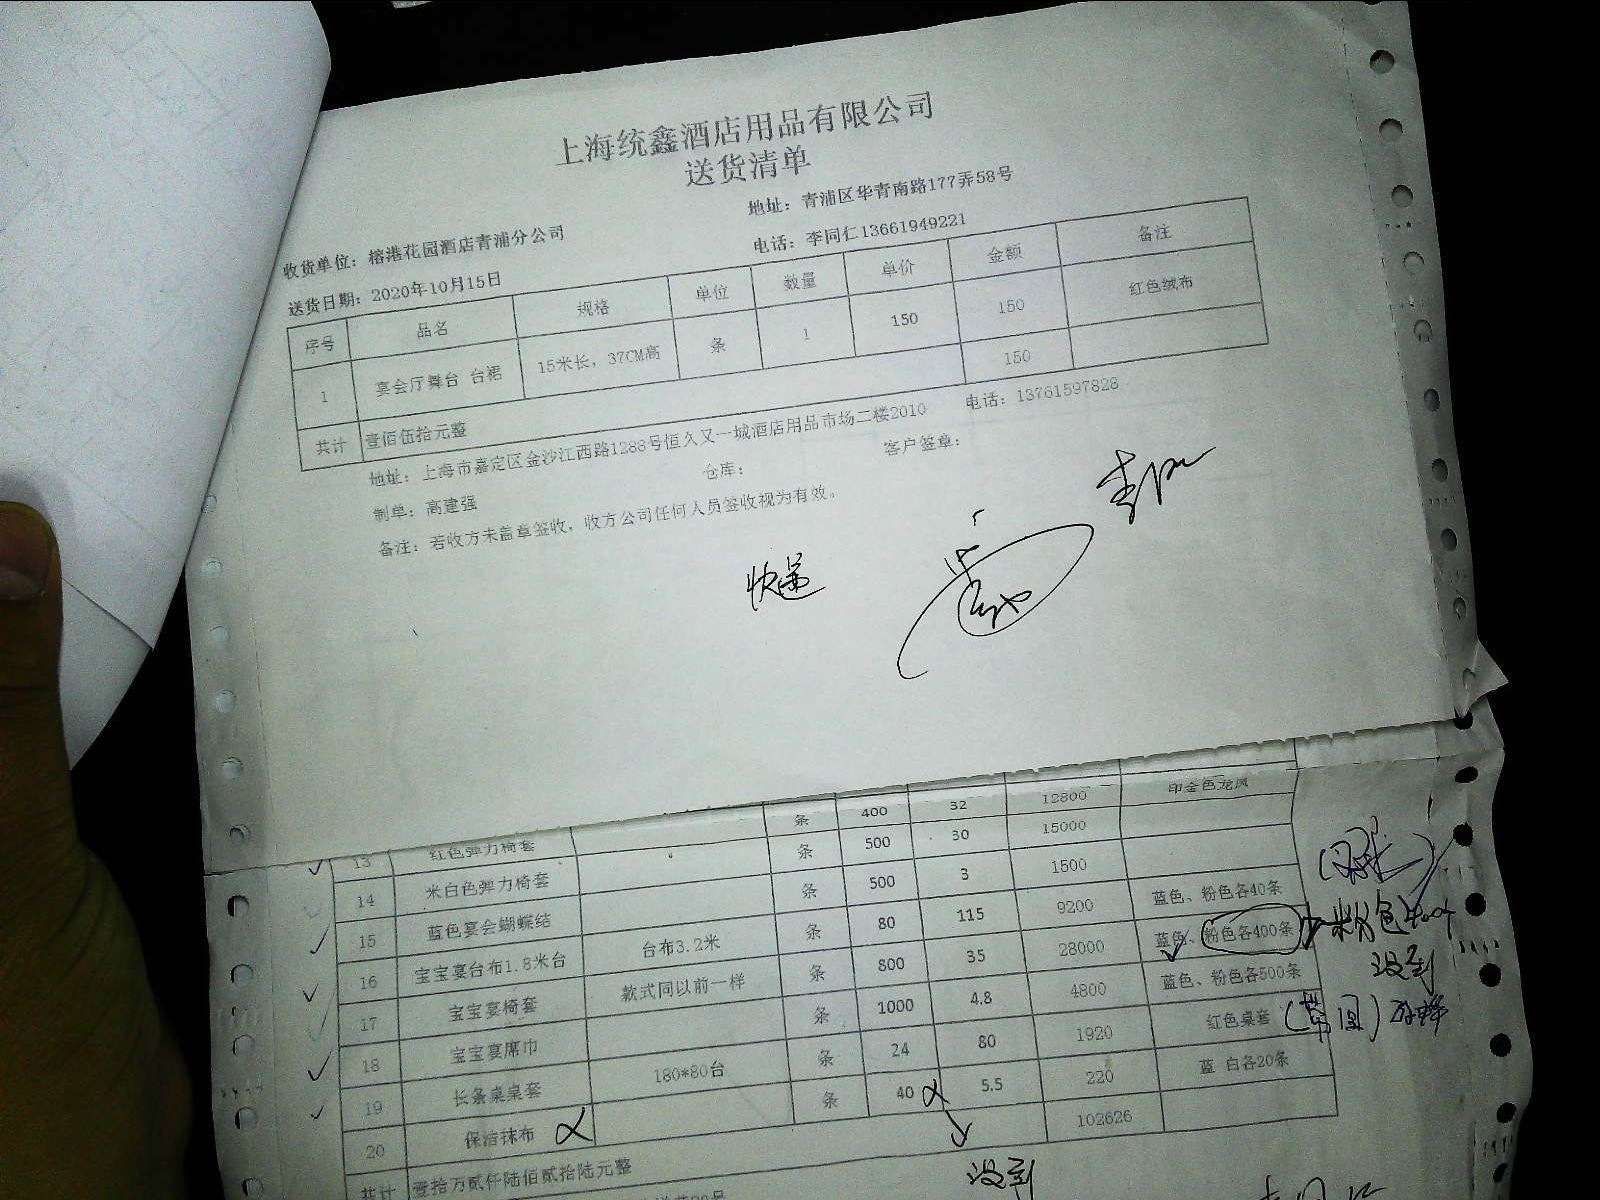 上海统鑫酒店用品有限公司
送货清单
地址：青浦区华青南路177弄58号
收货单位：榕港花园酒店青浦分公司
电话：李同仁13661949221
送货日期：2020年10月15日
序号 品名 规格 单位 数量 单价 金额 备注
1 宴会厅舞台 台裙 15米长，37CM高 条 1 150 150 红色绒布
共计 壹佰伍拾元整 150
地址：上海市嘉定区金沙江西路1288号恒久又一城酒店用品市场二楼2010 电话：13761597828
制单：高建强 仓库： 客户签章：
备注：若收方未盖章签收，收方公司任何人员签收视为有效。
快递
条 400 32 12800 印金色龙凤
13 红色弹力椅套 条 500 30 15000
14 米白色弹力椅套 条 500 3 1500
15 蓝色宴会蝴蝶结 条 80 115 9200 蓝色、粉色各40条
16 宝宝宴台布1.8米台 台布3.2米 条 800 35 28000 蓝色、粉色各400条
粉色400个
没到
17 宝宝宴椅套 款式同以前一样 条 1000 4.8 4800 蓝色、粉色各500条
18 宝宝宴席巾 条 24 80 1920 红色桌套
19 长条桌桌套 180*80台 条 40 5.5 220 蓝 白各20条
20 保洁抹布 102626
共计 壹拾万贰仟陆佰贰拾陆元整
没到